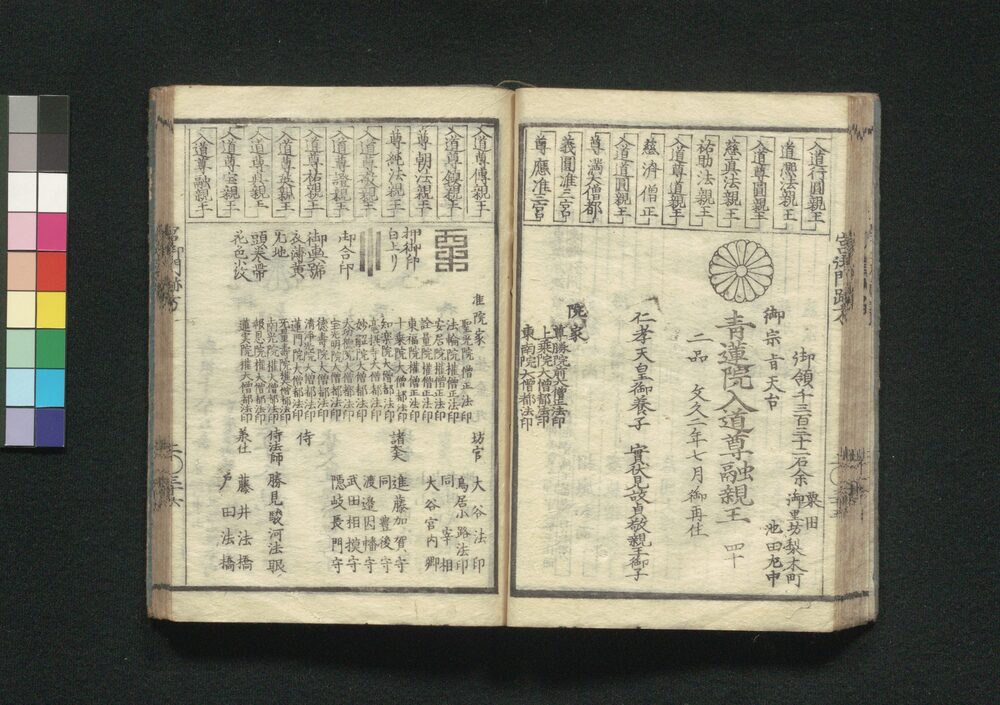 入道行圓親王
道熈法親王
入道尊圓親王
慈真法親王
祐助法親王
入道尊道親王
慈濟僧正
入道道圓親王
尊滿大僧都
義圓准三宮
尊應准三宮
宮御門跡方
御領千三百三十二石余
粟田
御里坊梨木町
池田九申
御宗旨天台
青蓮院入道尊融親王
四十
二品
文久二年七月御再住
仁孝天皇御養子
實伏見故貞敬親王御子
院家
尊勝院前大僧正法印
上乗院大僧都法印
東南院大僧都法印
入道尊傳親王
入道尊鎮親王
尊朝法親王
尊純法親王
入道尊證親王
入道尊祐親王
入道尊英親王
入道尊真親王
入道尊宝親王
入道尊融親王
押御印
白上り
御合印
御輿舁
衣薄黄
无地
頭巾帯
花色小紋
准院家
聖光院僧正法印
法輪院權僧正法印
安居院權僧正法印
詮量院權僧正法印
東福院權僧正法印
十乗院大僧都法印
知楽院大僧都法印
妙観院大僧都法印
定光明院大僧都法印
德壽院大僧都法印
清浄院權大僧都法印
蓮門院大僧都法印
南光院權大僧都法印
報恩院權大僧都法印
道実院權大僧都法印
坊官
大谷法印
鳥居小路法印
同宰相
大谷宮内卿
諸大夫
進藤加賀守
同豊後守
渡邉因幡守
武田相模守
隠岐長門守
侍
侍法師
勝見駿河法眼
兼仕
藤井法橋
戸田法橋
宮御門跡方